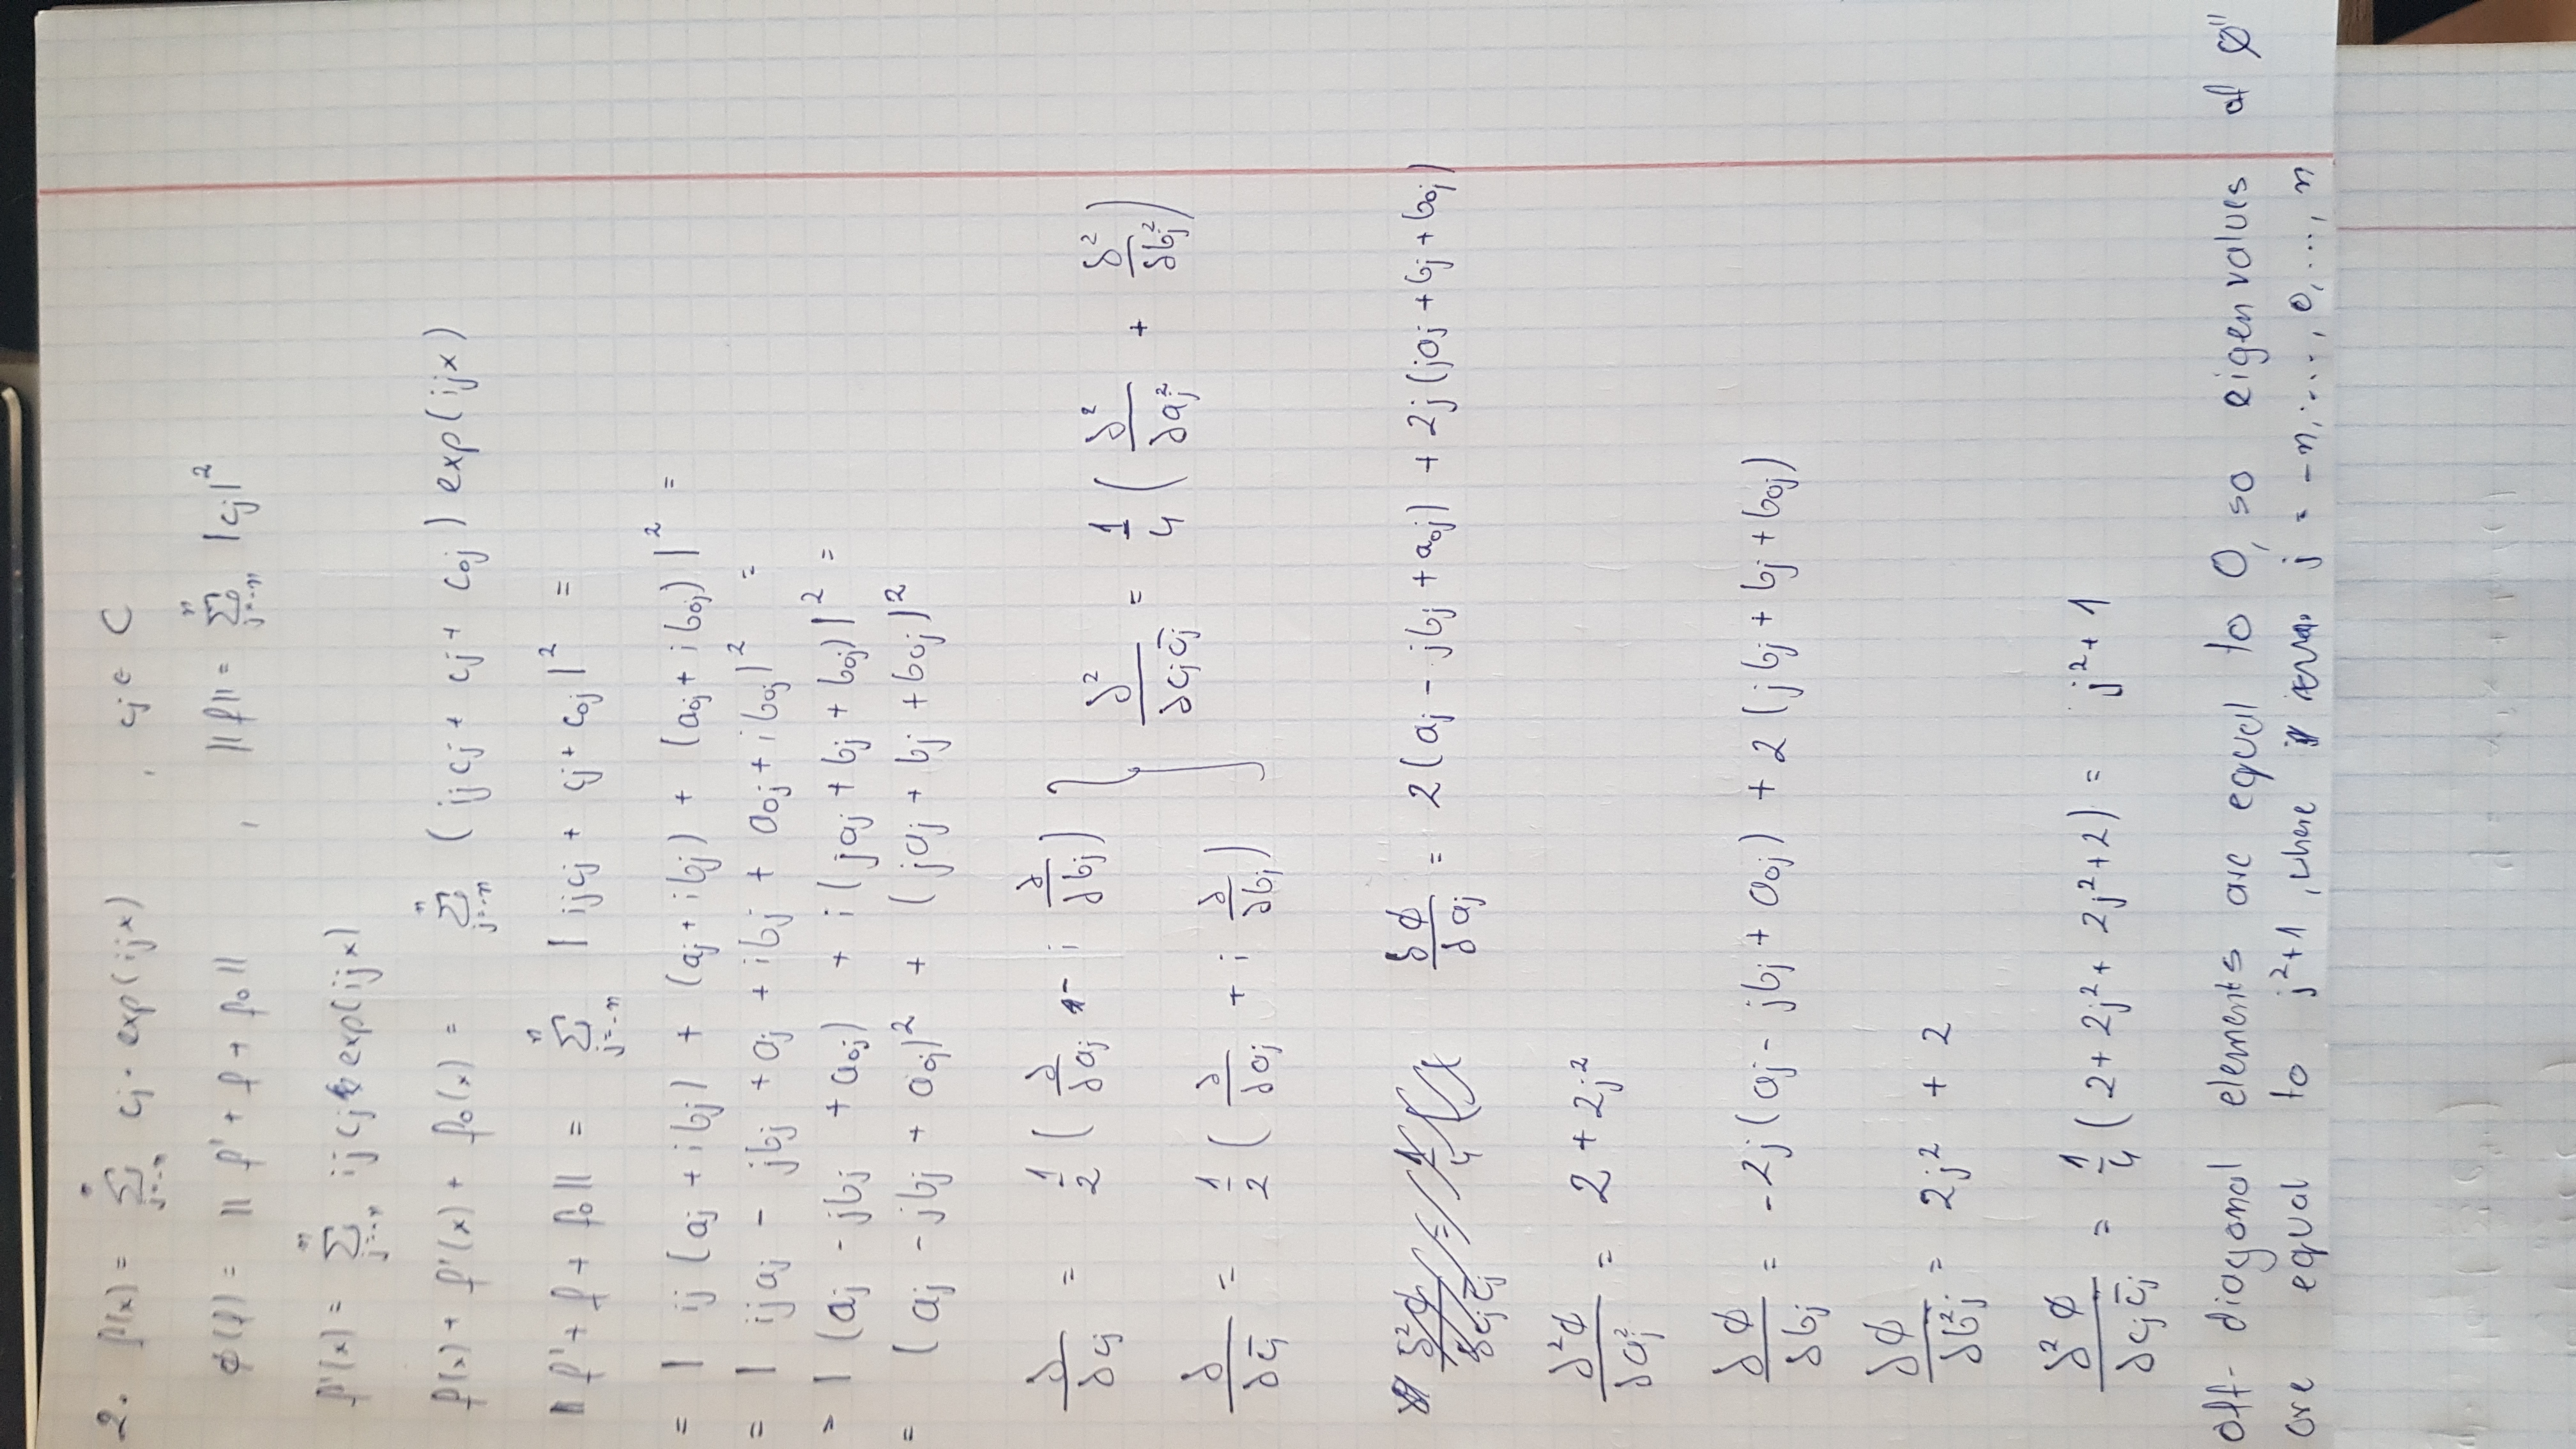 2. f(x) = ∑_{j=-n}^{n} cj · exp(ijx) , cj ∈ C
ϕ(f) = || f' + f + f₀ || , || f || = ∑_{j=-n}^{n} |cj|²
f'(x) = ∑_{j=-n}^{n} ij cj exp(ijx)
f(x) + f'(x) + f₀(x) = ∑_{j=-n}^{n} ( ijcj + cj + c₀j ) exp(ijx)
|| f' + f + f₀ || = ∑_{j=-n}^{n} | ijcj + cj + c₀j |² =
= | ij (aj + ibj) + (aj + ibj) + (a₀j + ib₀j) |² =
= | ijaj - jbj + aj + ibj + a₀j + ib₀j |² =
= | (aj - jbj + a₀j) + i (jaj + bj + b₀j) |² =
= (aj - jbj + a₀j)² + (jaj + bj + b₀j)²
∂/∂cj = 1/2 ( ∂/∂aj - i ∂/∂bj )
∂/∂c̄j = 1/2 ( ∂/∂aj + i ∂/∂bj ) } ∂²/∂cjc̄j = 1/4 ( ∂²/∂aj² + ∂²/∂bj² )
∂ϕ/∂aj = 2(aj - jbj + a₀j) + 2j (jaj + bj + b₀j)
∂²ϕ/∂aj² = 2 + 2j²
∂ϕ/∂bj = -2j (aj - jbj + a₀j) + 2 (jbj + bj + b₀j)
∂ϕ/∂b²j = 2j² + 2
∂²ϕ/∂cjc̄j = 1/4 ( 2 + 2j² + 2j² + 2 ) = j² + 1
Off-diagonal elements are equal to 0, so eigenvalues of ϕ''
are equal to j²+1, where j = -n, ...., 0, ..., n